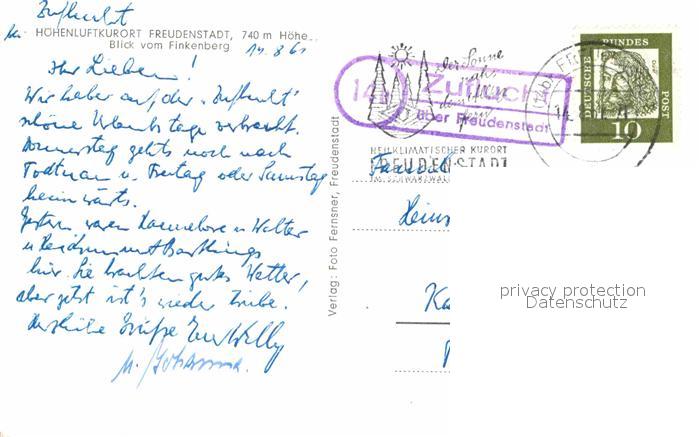 Zuflucht
HÖHENLUFTKURORT FREUDENSTADT, 740 m Höhe
Blick vom Finkenberg
14. 8. 61
Ihr Lieben!
Wir haben auf der "Zuflucht"
schöne Urlaubstage verbracht.
Donnerstag gehts noch nach
Todtnau u. Freitag oder Samstag
heimwärts.
Gestern waren Hannelore u. Walter
hier. Sie brachten gutes Wetter,
aber jetzt ist's wieder trübe.
Herzliche Grüße Eure Willy
u. Johanna.
Verlag: Foto Fernsner, Freudenstadt
der Sonne
nah,
14a
Zuflucht
über Freudenstadt
HEILKLIMATISCHER KURORT
FREUDENSTADT
IM SCHWARZWALD
DEUTSCHE BUNDESPOST
10
Familie
Heinz
Ka
privacy protection
Datenschutz